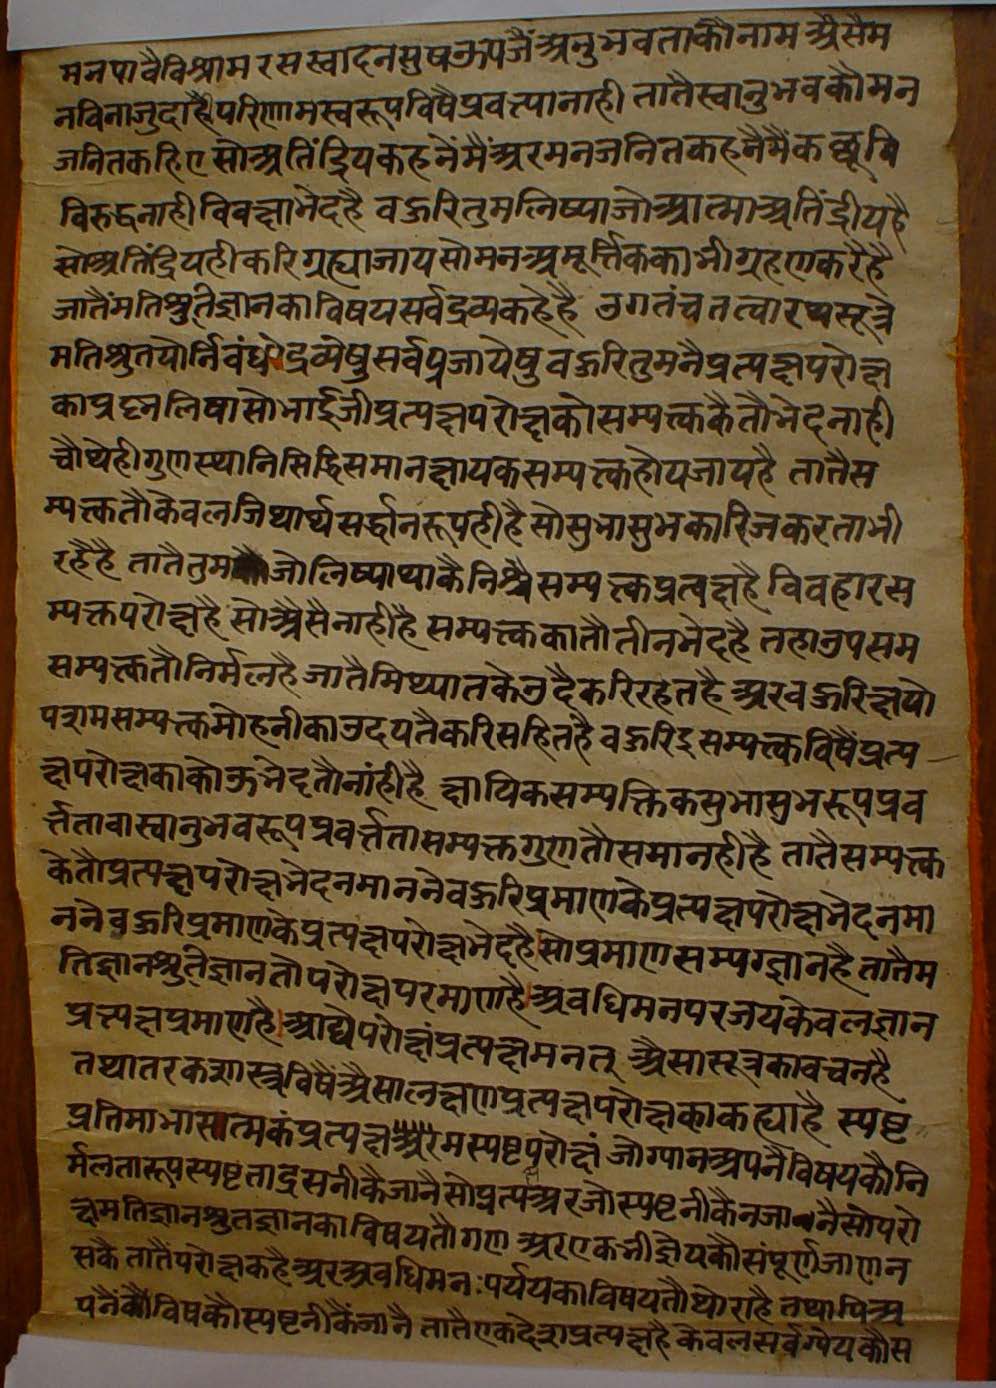 मनपावैविश्रामरसस्वादनसुषऊपजैंअनुभवताकौनामअैसैम
नविनाजुदाहीपरिणामस्वरूपविषैप्रवत्यानाही तातैस्वानुभवकौमन
जनितकहिए सोअतिंद्रियकहनेंमैंअरमनजनितकहनैमैंकछूवि
विरुद्धनाही विवक्षाभेदहै वऊरितुमलिष्याजोआत्माअतिंद्रीयहै
सोअतिंद्रियहीकरिग्रह्याजायसोमनअमूर्त्तिककाभीग्रहणकरैहै
जातैंमतिश्रुतज्ञानकाविषयसर्वद्रव्यकहेहै उगतंचतत्वारथसूत्रे
मतिश्रुतयोर्निबंधोद्रव्येषुसर्वप्रजायेषु वऊरितुमनैप्रत्यक्षपरोक्ष
काप्रश्नलिषासोभाईजीप्रत्यक्षपरोक्षकोसम्यत्ककैतौभेदनाही
चौथेहीगुणस्थानिसिद्धिसमानक्षायकसम्यत्कहोयजायहै तातैस
म्यत्कतौकेवलजिथार्थसर्द्धानरूपहीहै सोसुभासुभकारिजकरताभी
रहैहै तातैतुम जोलिष्याथाकैनिश्चैसम्यत्कप्रत्यक्षहै विवहारस
म्यक्तपरोक्षहै सोअैसैनाहीहै सम्यत्ककातौतीनभेदहै तहाउपसम
सम्यत्कतौनिर्मलहै जातैमिथ्यातकेउदैकरिरहतहै अरवऊरिक्षयो
पशमसम्यत्कमोहनीकाउदयतैकरिसहितहै वऊरिइसम्यत्कविषैंप्रत्य
क्षपरोक्षकाकोऊभेदतौनांहीहै क्षायिकसम्यक्तिकसुभासुभरूपप्रव
र्त्ततावास्वानुभवरूपप्रवर्त्ततासम्यक्तगुणतौसमानहीहै तातैसम्यत्क
केतौप्रत्यक्षपरोक्षभेदनमाननेवऊरिप्रमाणकेप्रत्यक्षपरोक्षभेदनमा
ननेवऊरिप्रमाणकेप्रत्यक्षपरोक्षभेदहै।सोप्रमाणसम्यग्ज्ञानहै तातैम
तिज्ञानश्रुतज्ञानतोपरोक्षपरमाणहै।अवधिमनपरजयकेवलज्ञान
प्रत्यक्षप्रमाणहै।आद्येपरोक्षंप्रत्यक्षमनत् अैसासूत्रकावचनहै
तथातरकशास्त्रविषैंअैसालक्षणप्रत्यक्षपरोक्षकाकह्याहै स्पष्ट
प्रतिमाभासात्मकंप्रत्यक्ष मस्पष्टपरोक्षं जोग्यानअपनैविषयकौनि
र्मलतारूपस्पष्टताद्रसनीकैजानैसोप्रत्य अरजोस्पष्टनीकैनजानैसोपरो
क्षमतिज्ञानश्रुतज्ञानकाविषयतौगण अरएकभीज्ञेयकौसंपूर्णजाणन
सकै तातैंपरोक्षकहै अरअवधिमनःपर्ययकाविषयतौथोराहै तथापिअ
पनैंकौविषकौस्पष्टनीकैंजानै तातैएकदेशप्रत्यक्षहै केवलसर्वग्येयकौस